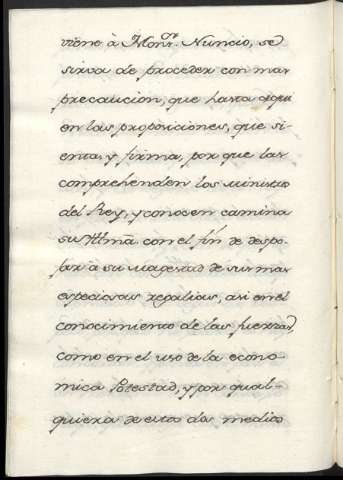 viene à Monsr. Nuncio, se
sirva de proceder con mas
precaucion, que hasta aqui
en las proposiciones, que si-
enta, y firma, por que las
comprehenden los Ministros
del Rey, y conocen camina
su Illmã. con el fin de despo-
jar à su Magestad de sus mas
especiosas regalias, asi en el
conocimiento de las fuerzas,
como en el uso de la econo-
mica Potestad, y por qual-
quiera de estos dos medios